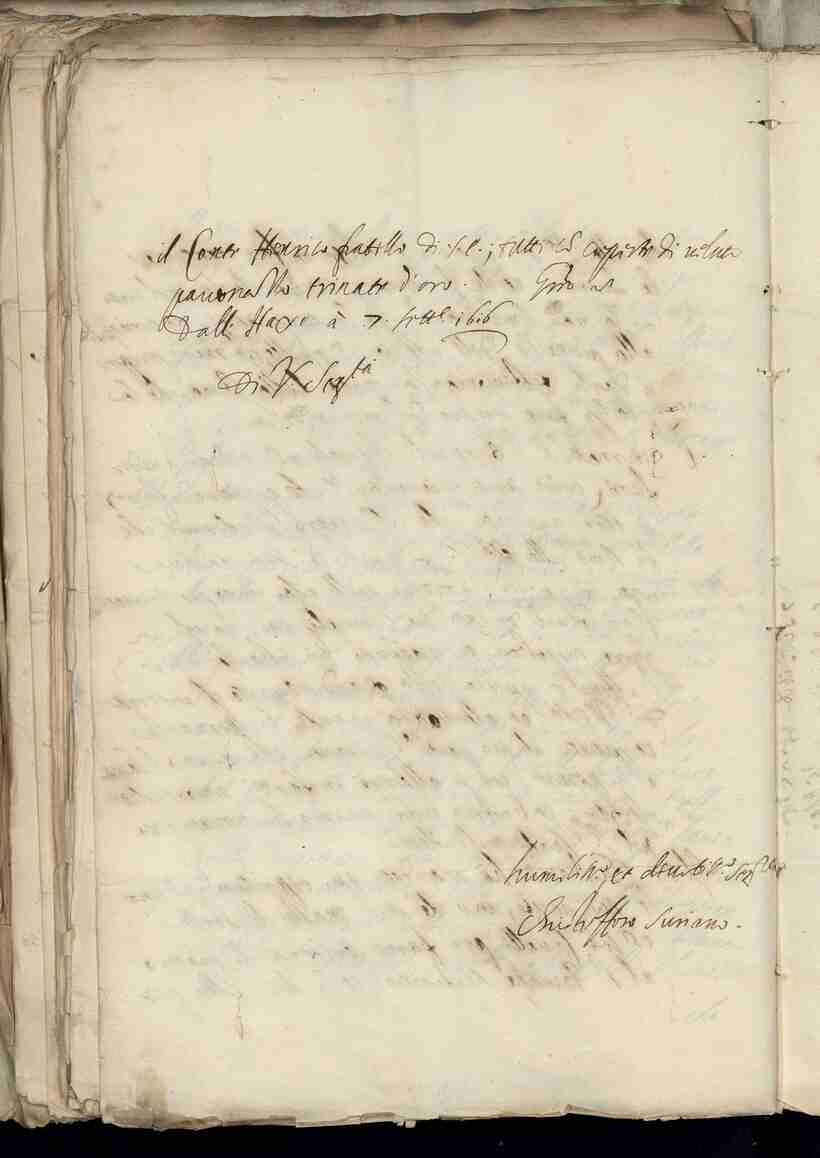 il Conte Henrico fratello di S. E.; tutti cō coperte di veluto
pauonazzo trinate d'oro. Gra etc
Dall' Haya à 7. Sette 1616
Di V. Serta
humilissº et deuotissº
Christofforo Suriano.